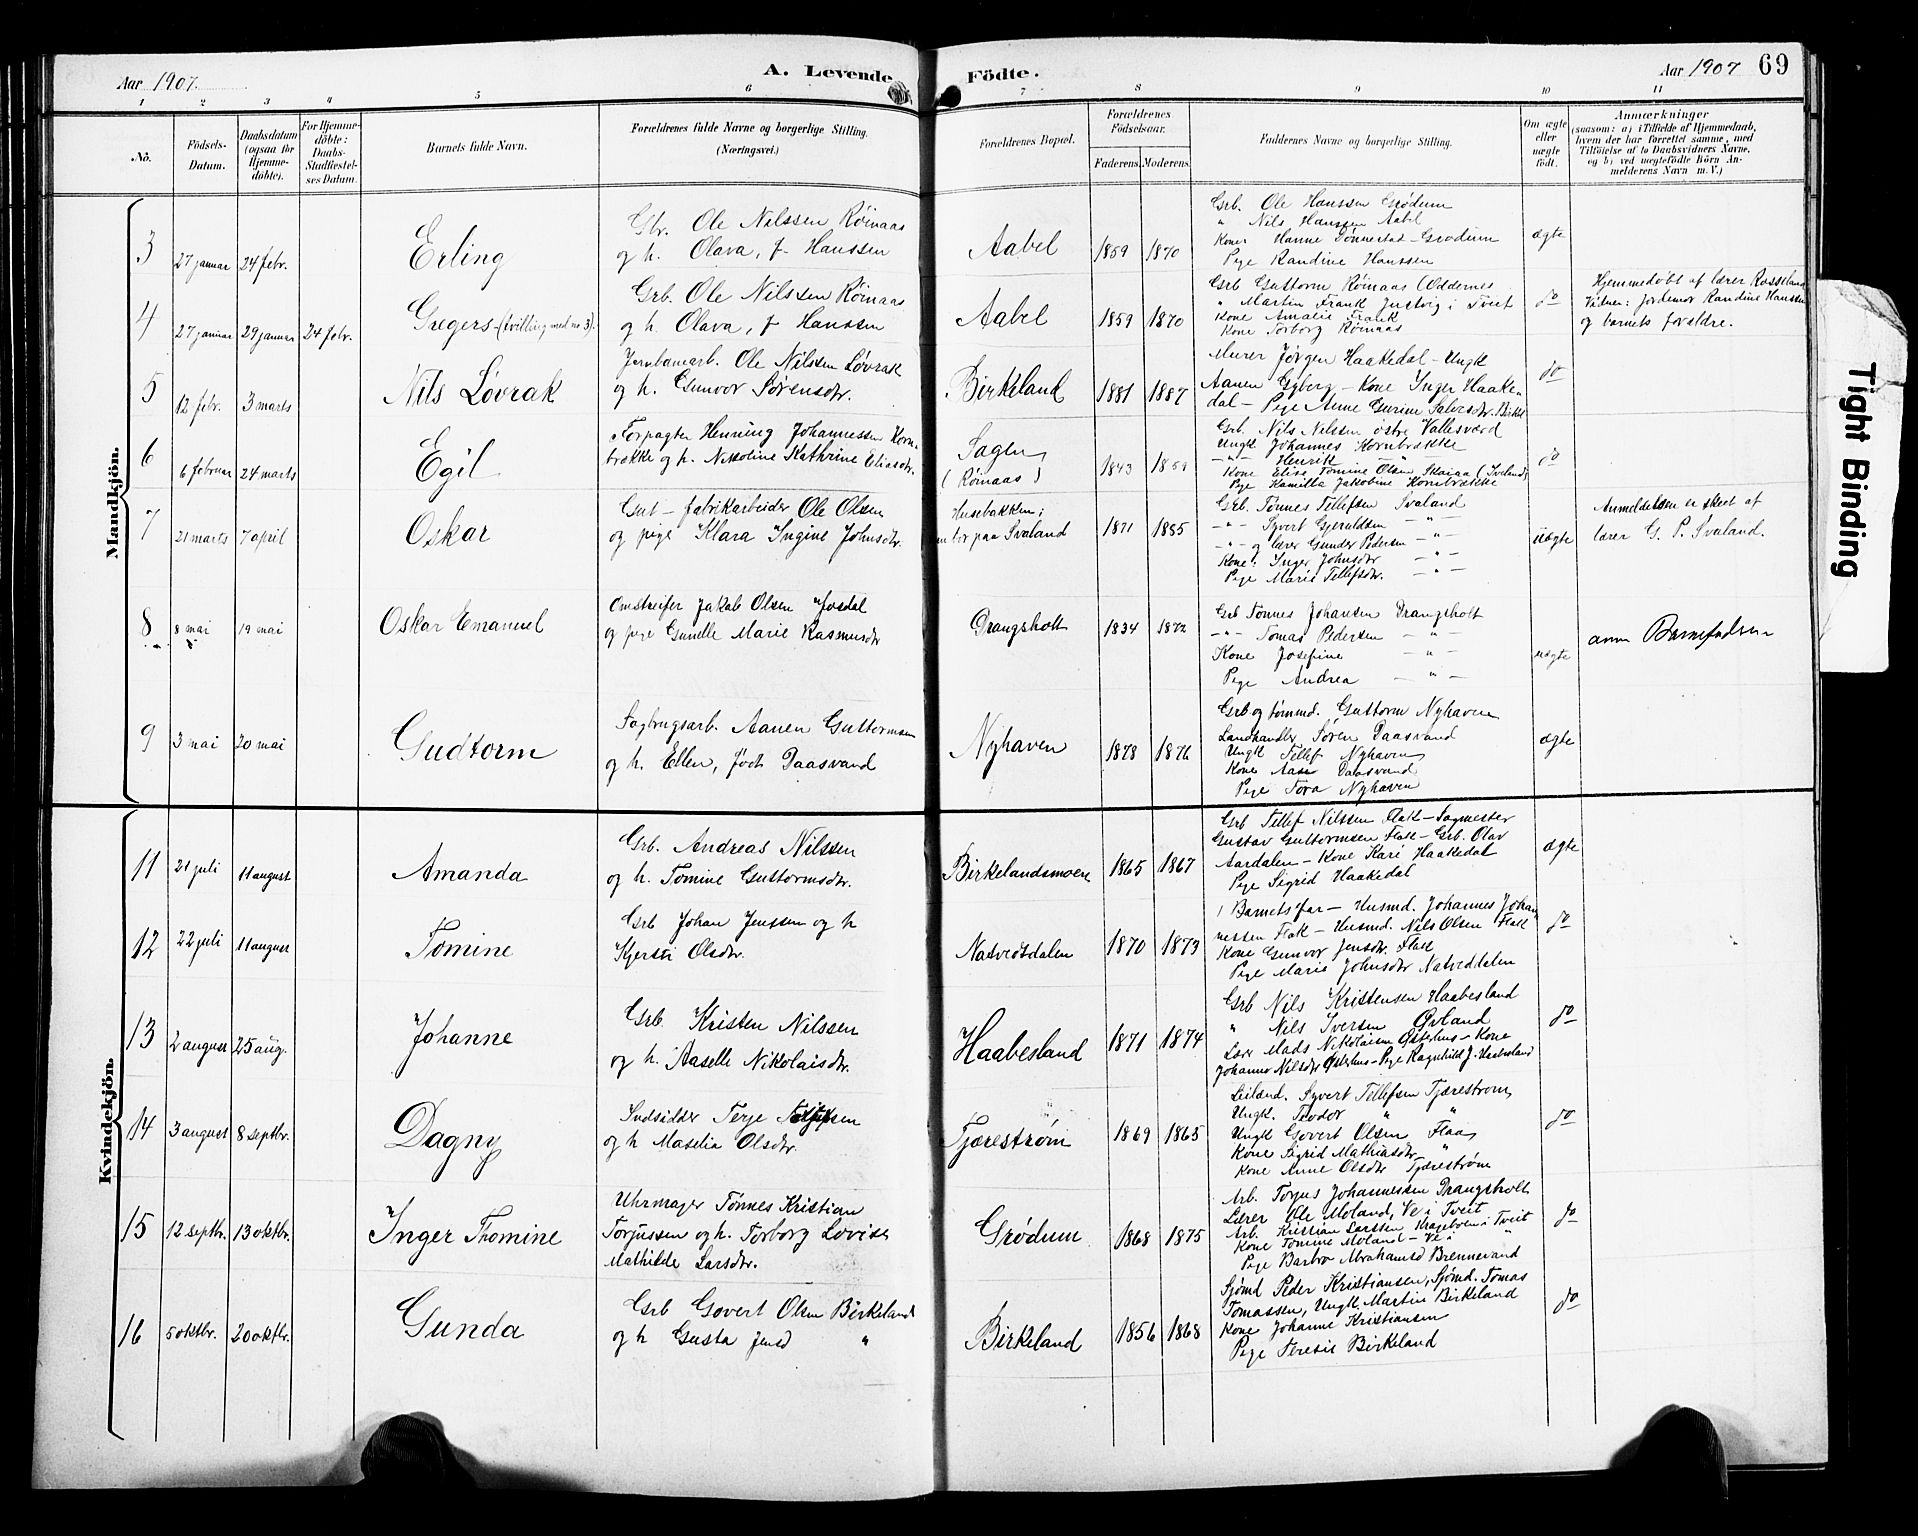 Aar 1907.
A. Levende Födte.
Aar 1907
69
1 2 3 4 5 6 7 8 9 10 11
No.
Födsels-
Datum.
Daabsdatum
(ogsaa for
Hjemme-
döbte).
For Hjemme-
döbte:
Daabs-
Stadfæstel-
ses Datum.
Barnets fulde Navn.
Forældrenes fulde Navne og borgerlige Stilling.
(Næringsvei.)
Forældrenes Bopæl.
Forældrenes
Födselsaar.
Faderens. Moderens.
Faddernes Navne og borgerlige Stilling.
Om ægte
eller
uægte
födt.
Anmærkninger
(saasom: a) i Tilfælde af Hjemmedaab,
hvem der har forrettet samme, med
Tilföielse af to Daabsvidners Navne,
og b) ved uægtefödte Börn An-
melderens Navn m. V.)
Mandkjön.
3
27 januar
24 febr.
Erling
Gbr. Ole Nilssen Röinaas
og h. Olava, f. Hanssen
Aabel
1859
1870
Grb. Ole Hanssen Grødum
" Nils Hanssen Aabel
Kone: Hanne Tönnestad-Grødum
Pige Randine Hanssen
ægte
4
27 januar
29 januar
24 febr.
Gregers (tvilling med no 3).
Grb. Ole Nilssen Röinaas
og h. Olava, f. Hanssen
Aabel
1859
1870
Grb Guttorm Röinaas (Oddernes
" Martin Frank Justvig i Tveit
Kone Amalie Frank
Kone Torborg Röinaas
do
Hjemmedöbt af lærer Rosseland
Vidner: Jordemor Randine Hanssen
og barnets forældre.
5
12 febr.
3 marts
Nils Lövrak
Jernbanearb. Ole Nilssen Lövrak
og h. Gunvor Sørensdtr.
Birkeland
1881
1887
Murer Jørgen Haakedal - Ungk
Aanen Gyberg - Kone Inger Haake-
dal - Pige Anne Gurine Salvesdtr. Birkel
do
6
6 februar
24 marts
Egil
Forpagter Henning Johannessen Korn-
brække og h. Nikoline Kathrine Eliasdtr.
Sagen
(Röinaas)
1843
1859
Grb. Nils Nilsen østre Vallesværd
Ungk Johannes Kornbrække
-"- Henrik -"-
Kone Elise Tomine Olsen Skaiaa (Iveland)
Pige Kamilla Jakobine Kornbrække
do
7
21 marts
7 april
Oskar
Gut - fabrikarbeider Ole Olsen
og pige Klara Ingine Johnsdtr.
Husebakken;
mor paa Svaland
1871
1885
Grb. Tønnes Tellefsen Svaland
-"- Syvert Gjeruldsen -"-
-"- og lærer Gunder Pedersen -"-
Kone: Inger Johnsdtr -"-
Pige Marie Tellefsdtr. -"-
uægte
Anmeldelsen er skeet af
lærer G. P. Svaland.
8
8 mai
19 mai
Oskar Emanuel
Omstreifer Jakob Olsen Josdal
og pige Gunelle Marie Rasmusdtr
Drangsholt
1834
1872
Grb Tönnes Johansen Drangsholt
-"- Tomas Pedersen -"-
Kone Josefine -"-
Pige Andrea -"-
uægte
9
3 mai
20 mai
Gudtorm
Sagbrugsarb. Aanen Guttormsen
og h. Ellen, födt Daasvand
Nyhaven
1878
1876
Grb og tømmd. Guttorm Nyhaven
Landhandler Sören Daasvand
Ungk Tellef Nyhaven
Kone Aase Daasvand
Pige Tora Nyhaven
ægte
Kvindekjön.
11
21 juli
11 august
Amanda
Grb. Andreas Nilssen
og h. Tomine Guttormsdtr.
Birkelandsmoen
1865
1867
Grb Tellef Nilssen Flak - Sagmester
Gustav Guttormsen Flak - Grb. Olav
Aardalen - Kone Kari Haakedal
Pige Sigrid Haakedal
ægte
12
22 juli
11 august
Tomine
Grb Johan Jenssen og h
Kjersti Olsdtr.
Natvedtdalen
1870
1873
Barnets far - Husmd. Johannes Johan
nessen Flak - Husmd. Nils Olsen Flak
Kone Gunvor Jensdtr. Flak
Pige Marie Johnsdtr Natveddalen
do
13
2 august
25 aug.
Johanne
Grb. Kristen Nilssen
og h. Aaselle Nikolaisdtr.
Haabesland
1871
1874
Grb Nils Kristensen Haabesland
" Nils Iversen Øvland
Lær Mads Nikolaisen Østerhus - Kone
Johanne Nilsdtr Østerhus - Pige Ragnhild J. Haabesland
do
14
3 august
8 septbr.
Dagny
Indsidder Terje
og h Maselia Olsdtr.
Tjærestrøm
1869
1865
Leilænd. Syvert Tellefsen Tjærestrøm
Ungk. Teodor " "
Ungk Govert Olsen Flaa
Kone Sigrid Mathiasdtr "
Kone Anne Olsdtr Tjærestrøm
do
15
12 septbr.
13 oktbr.
Inger Thomine
Uhrmager Tønnes Kristian
Torjussen og h. Torborg Lovise
Mathilde Larsdtr.
Grödum
1868
1875
Arb. Torjus Johannessen Drangsholt
Lærer Ole Moland, Ve i Tveit
Arb. Kristian Larssen Krageboen i Tveit
Kone Tomine Moland - Ve i "
Pige Barbro Abrahamsd Brennevand
do
16
5 oktbr.
20 oktbr.
Gunda
Grb Govert Olsen Birkeland
og h Gusta Jensd "
Birkeland
1856
1868
Sjömd Peder Kristiansen, Sjömd. Tomas
Tomassen, Ungk. Martin Birkeland
Kone Johanne Kristiansen
Pige Teresie Birkeland
do
Tight Binding